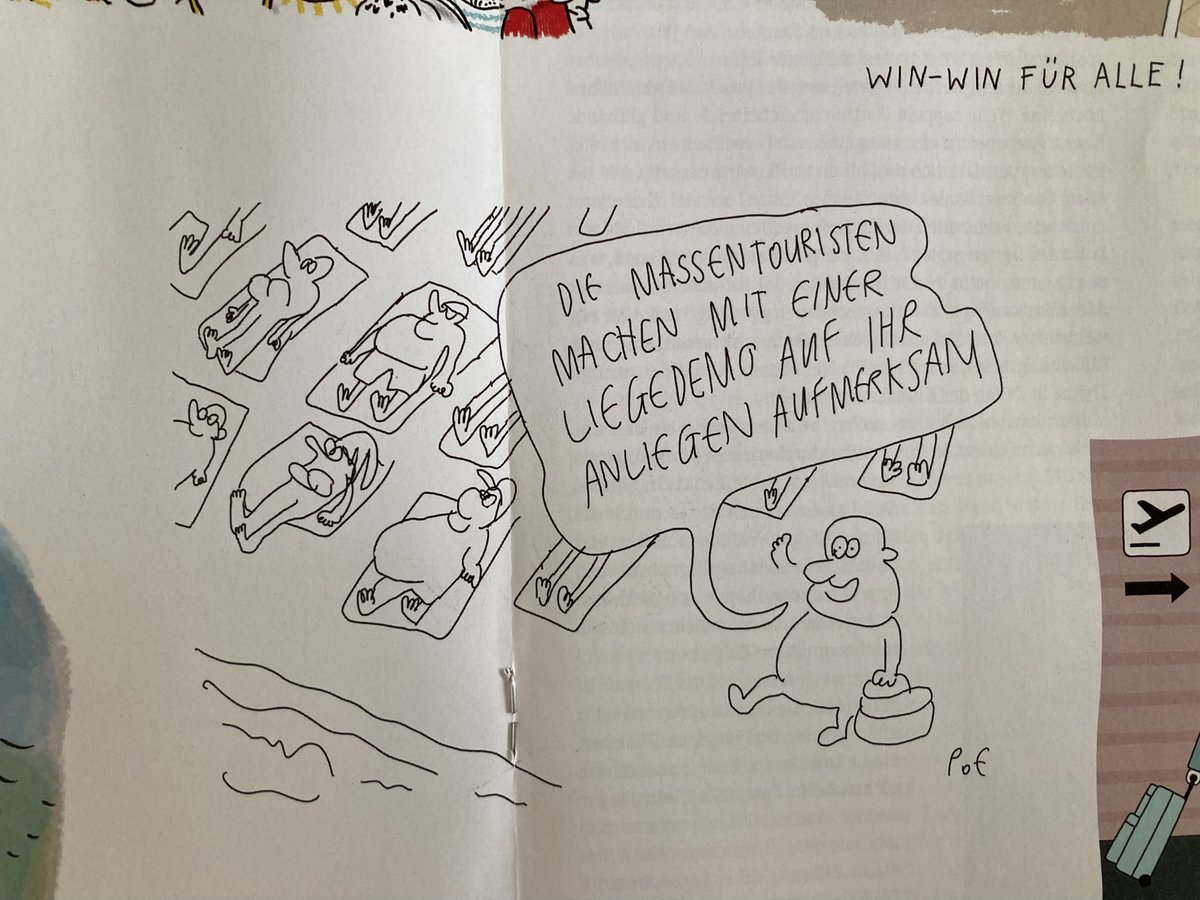 WIN-WIN FÜR ALLE!
DIE MASSENTOURISTEN
MACHEN MIT EINER
LIEGEDEMO AUF IHR
ANLIEGEN AUFMERKSAM
POE